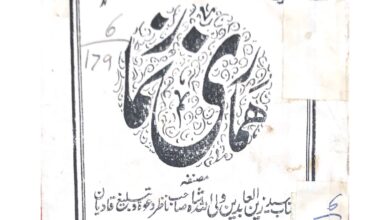 6
179
ہماری نماز
مصنفہ
جناب سید زین العابدین ولی اللہ شاہ صاحب ناظر دعوۃ و تبلیغ قادیان
6